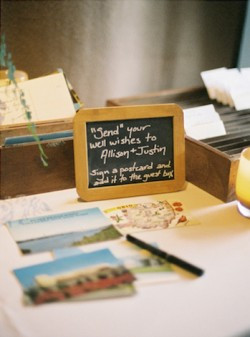 "Send" your
well wishes to
Allison + Justin
Sign a postcard and
add it to the guest box